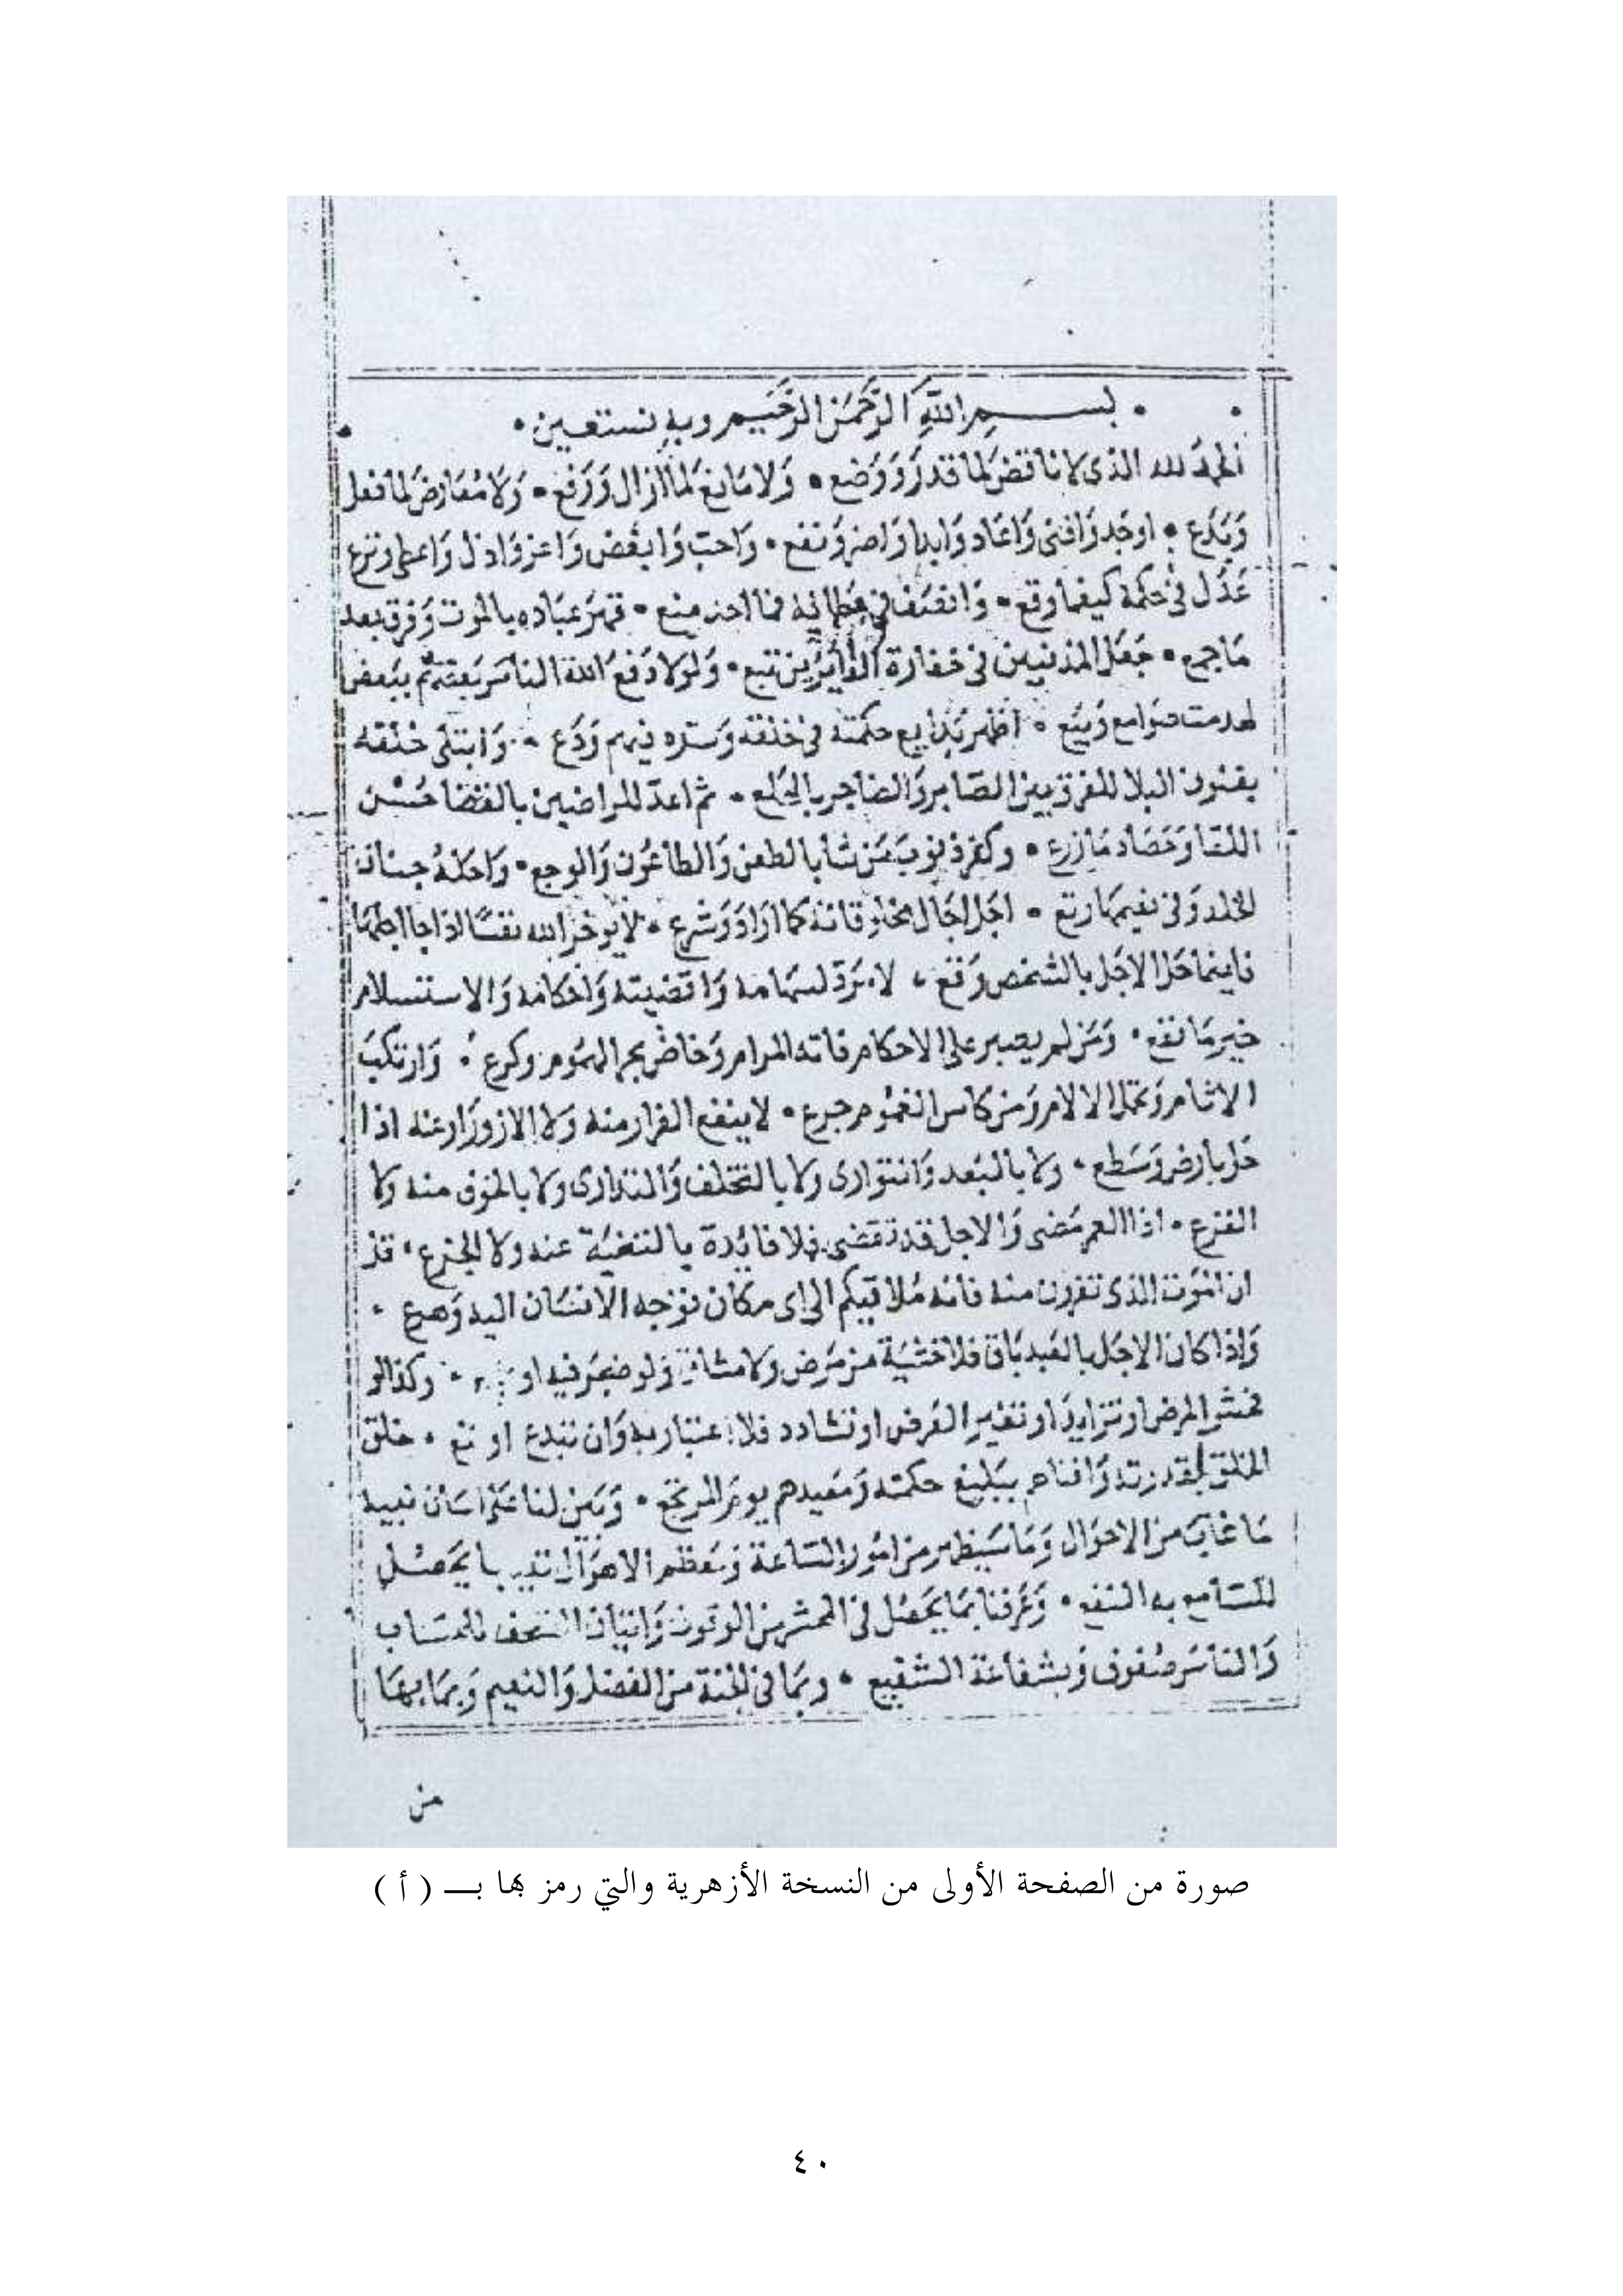 بسم الله الرحمن الرحيم وبه نستعين
الحمد لله الذى لا ناقض لما قدر ووضع • ولا مانع لما ازال ورفع • ولا معارض لما فعل
وبدع • اوجد وافنى واعاد وابدا واضر ونفع • واحب وابغض واعز واذل واعطى ونزع
عدل فى حكمه كيفما وقع • وانصف فى عطائه فما احد منع • قهر عباده بالموت وفرق بعد
ما جمع • جعل المذنبين فى خفارة تبع • ولولا دفع الله الناس بعضهم ببعض
لهدمت صوامع وبيع • اظهر بدايع حكمته فى خلقه وستره فيهم ودع • وابتلى خلقه
بفنون البلا للفرق بين الصابر والضاجر بالجلع • ثم اعد للراضين بالقضا حسن
اللقا وحصاد ما زرع • وكفر ذنوب من شا بالطعن والطاعون والوجع • واحله جنان
الخلد وفى نعيمها رتع • اجل اجال مخلوقاته كما اراد وشرع • لا يوخر الله نفسا اذا جا اجلها
فاينما حل الاجل بالشخص وقع • لا مرد لسهامه واقضيته واحكامه والاستسلام
خير ما نفع • ومن لم يصبر على الاحكام فاته المرام وخاض بحر الهموم وكرع • وارتكب
الاثام وتحمل الالام ومن كاس الغموم جرع • لا ينفع الفرار منه ولا الازورار عنه اذا
حل بارض وسطع • ولا بالبعد والتوارى ولا بالتخلف والتدارى ولا بالخوف منه ولا
الفزع • اذا العمر مضى والاجل قد تقضى فلا فائدة بالتنحية عنه ولا الجزع • قل
ان الموت الذى تفرون منه فانه ملاقيكم الى اى مكان توجه الانسان اليه وهرع •
واذا كان الاجل بالعبد باق فلا خشية من مرض ولا مشاق ولو ضجر فيه او • وكذا لو
فحش المرض او تزايد او تغير العرض او تشادد فلا اعتبار به وان • خلق
الخلق بقدرته وافناهم ببليغ حكمته ومعيدهم يوم المرتجع • وبين لنا على لسان نبيه
ما غاب من الاحوال وما سيظهر من امور الساعة ومعظم الاهوال بما يحصل
للسامع به النفع • وعرفنا بما يحصل فى المحشر من الوقوف واتيان الصحف للحساب
والناس صفوف وبشفاعة الشفيع • وبما فى الجنة من الفضل والنعيم وبما بها
من
صورة من الصفحة الأولى من النسخة الأزهرية والتي رمز بها بـــ ( أ )
٤٠